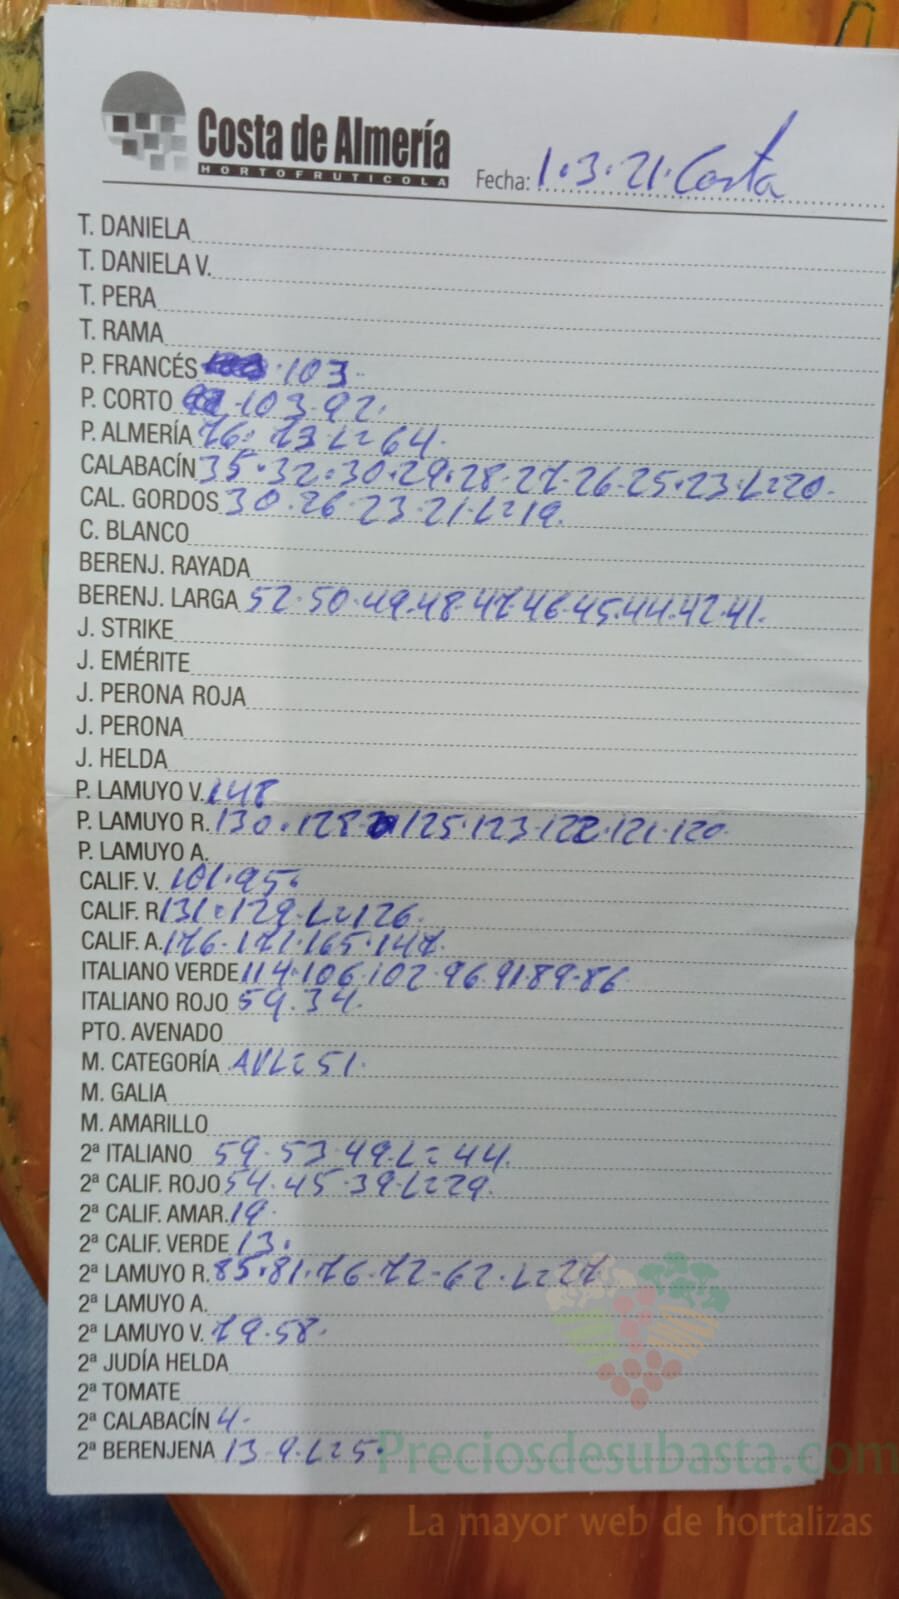 Costa de Almería
HORTOFRUTICOLA
Fecha: 1.3.21. Costa
T. DANELA
T. DANIELA V.
T. PERA
T. RAMA
P. FRANCÉS 103.
P. CORTO 103.92.
P. ALMERÍA 76. 73.L=64.
CALABACÍN 35.32.30.29.28.27.26.25.23.L=20.
CAL. GORDOS 30.26.23.21.L=19.
C. BLANCO
BERENJ. RAYADA
BERENJ. LARGA 52.50.49.48.47.46.45.44.42.41.
J. STRIKE
J. EMÉRITE
J. PERONA ROJA
J. PERONA
J. HELDA
P. LAMUYO V. 148
P. LAMUYO R. 130.128. 125.123.122.121.120.
P. LAMUYO A.
CALIF. V. 101.95.
CALIF. R 131.129.L=126.
CALIF. A. 176.171.165.147.
ITALIANO VERDE 114.106.102.96.91 89.86
ITALIANO ROJO 59.34.
PTO. AVENADO
M. CATEGORÍA AVL=51.
M. GALIA
M. AMARILLO
2ª ITALIANO 59.53.49.L=44.
2ª CALIF. ROJO 54.45.39.L=29.
2ª CALIF. AMAR. 19.
2ª CALIF. VERDE 13.
2ª LAMUYO R. 85.81.76.72.62.L=27
2ª LAMUYO A.
2ª LAMUYO V. 79.58.
2ª JUDÍA HELDA
2ª TOMATE
2ª CALABACÍN 4.
2ª BERENJENA 13.9.L=5.
Preciosdesubasta.com
La mayor web de hortalizas